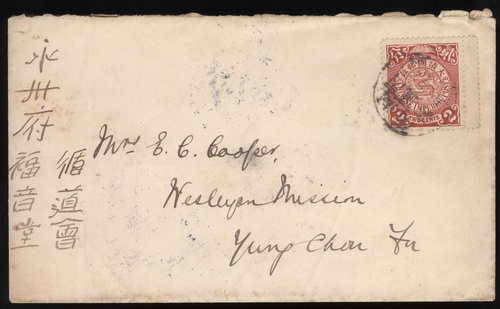 永州府福音堂
循道會
Mrs E. C. Cooper,
Wesleyan Mission
Yung Chou Fu